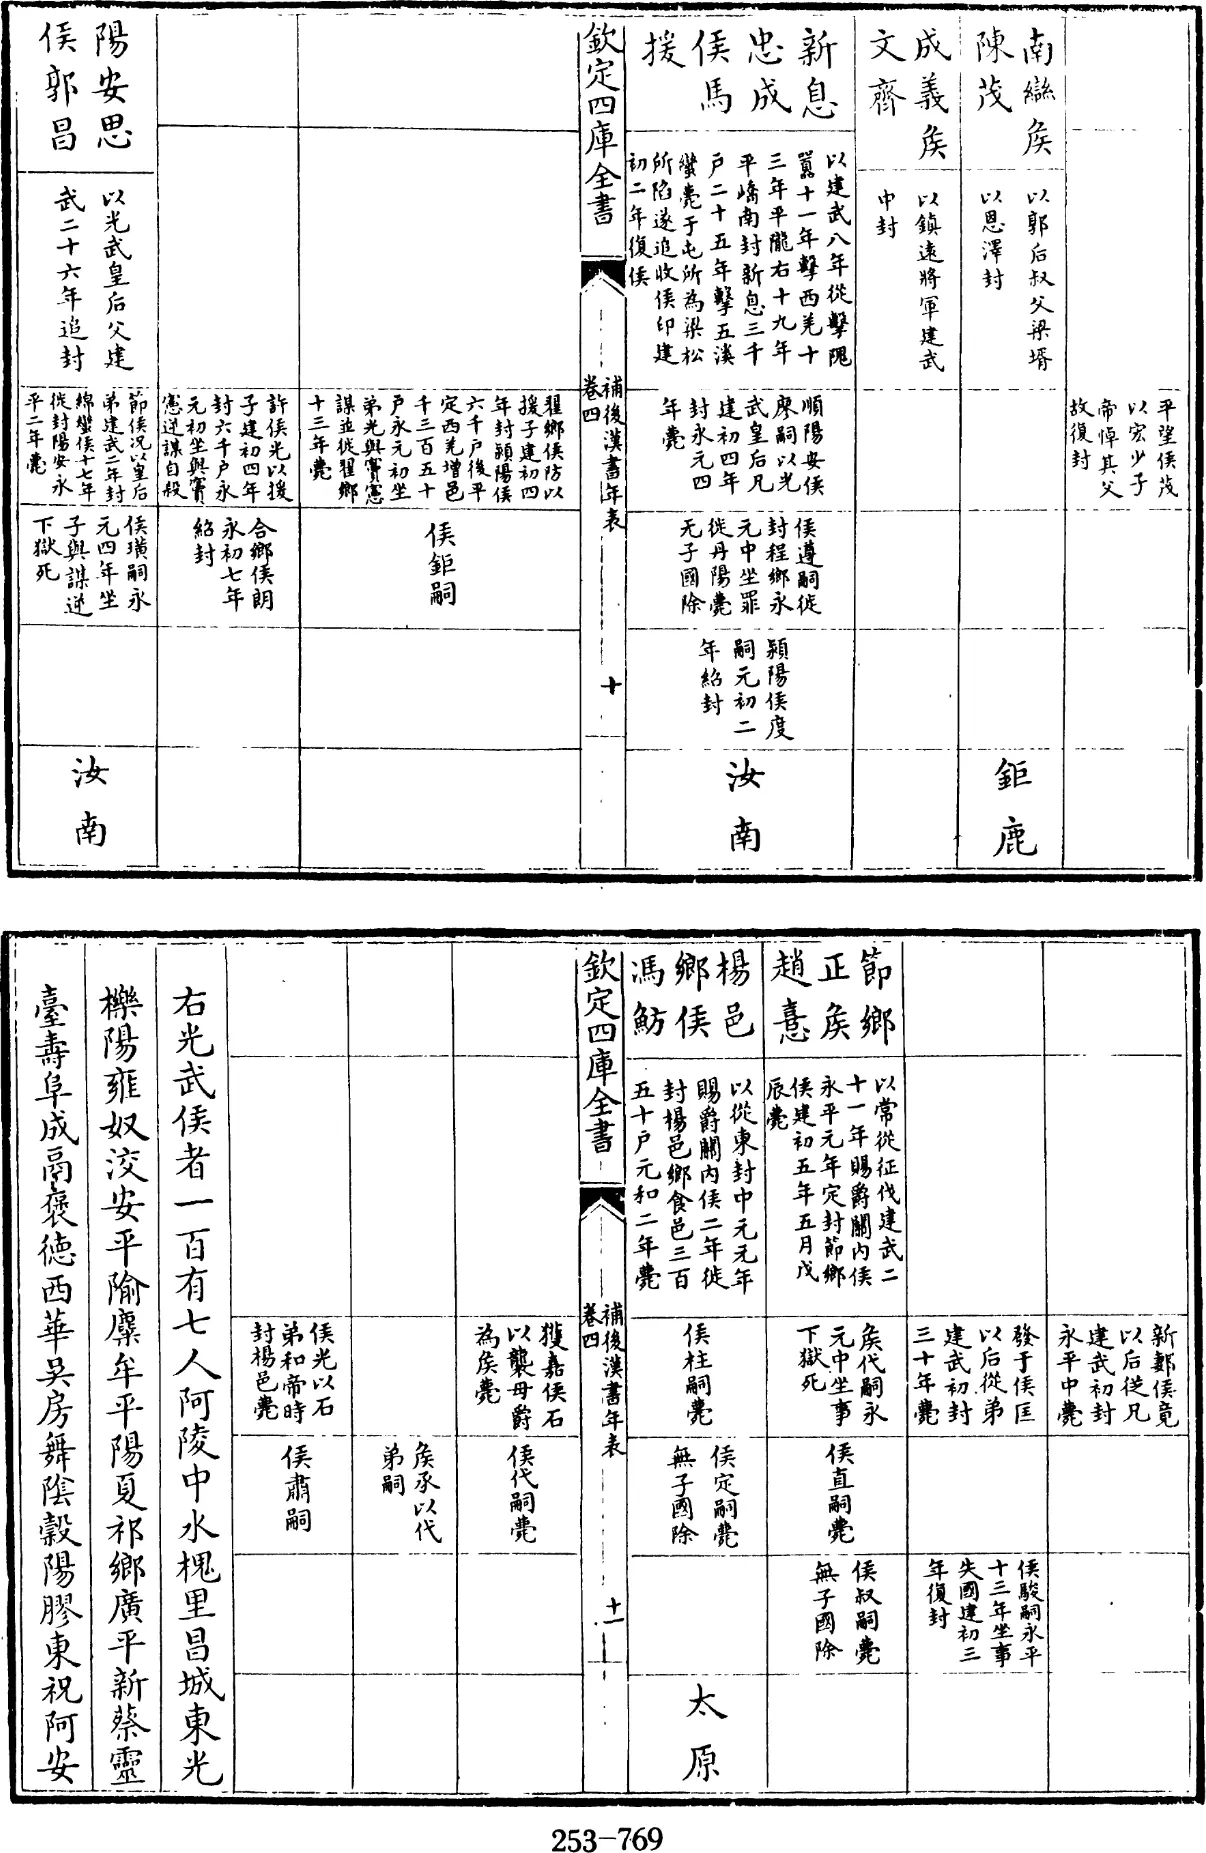 平望侯茂
以宏少子
帝悼其父
故復封
南䜌矦
陳茂
以郭后叔父梁壻
以恩澤封
鉅鹿
成義矦
文齊
以鎮遠將軍建武
中封
新息
忠成
侯馬
援
以建武八年從擊隗
囂十一年擊西羌十
三年平隴右十九年
平嶠南封新息三千
戶二十五年擊五溪
蠻薨于屯所為梁松
所陷遂追收侯印建
初二年復侯
順陽安侯
廖嗣以光
武皇后凡
建初四年
封永元四
年薨
侯遵嗣徙
封程鄉永
元中坐罪
徙丹陽薨
无子國除
潁陽侯度
嗣元初二
年紹封
汝南
欽定四庫全書
補後漢書年表
卷四
十
翟鄉侯防以
援子建初四
年封潁陽侯
六千戶後平
定西羌增邑
千三百五十
戶永元初坐
弟光與竇憲
謀並徙翟鄉
十三年薨
侯鉅嗣
許侯光以援
子建初四年
封六千戶永
元初坐與竇
憲逆謀自殺
合鄉侯朗
永初七年
紹封
陽安思
侯郭昌
以光武皇后父建
武二十六年追封
節侯况以皇后
弟建武二年封
綿蠻侯十七年
徙封陽安永
平二年薨
侯璜嗣永
元四年坐
子與謀逆
下獄死
汝南
新郪侯竟
以后從凡
建武初封
永平中薨
發于侯匡
以后從弟
建武初封
三十年薨
侯駿嗣永平
十三年坐事
失國建初三
年復封
節鄉
正矦
趙憙
以常從征伐建武二
十一年賜爵關內侯
永平元年定封節鄉
侯建初五年五月戊
辰薨
矦代嗣永
元中坐事
下獄死
侯直嗣薨
侯叔嗣薨
無子國除
楊邑
鄉侯
馮魴
以從東封中元元年
賜爵關內侯二年徙
封楊邑鄉食邑三百
五十戶元和二年薨
侯柱嗣薨
侯定嗣薨
無子國除
太原
欽定四庫全書
補後漢書年表
卷四
十一
獲嘉侯石
以襲母爵
為矦薨
侯代嗣薨
矦承以代
弟嗣
侯光以石
弟和帝時
封楊邑薨
侯肅嗣
右光武侯者一百有七人阿陵中水槐里昌城東光
櫟陽雍奴洨安平隃麋牟平陽夏祁鄉廣平新蔡靈
臺壽阜成鬲褒德西華吳房舞陰穀陽膠東祝阿安
253-769